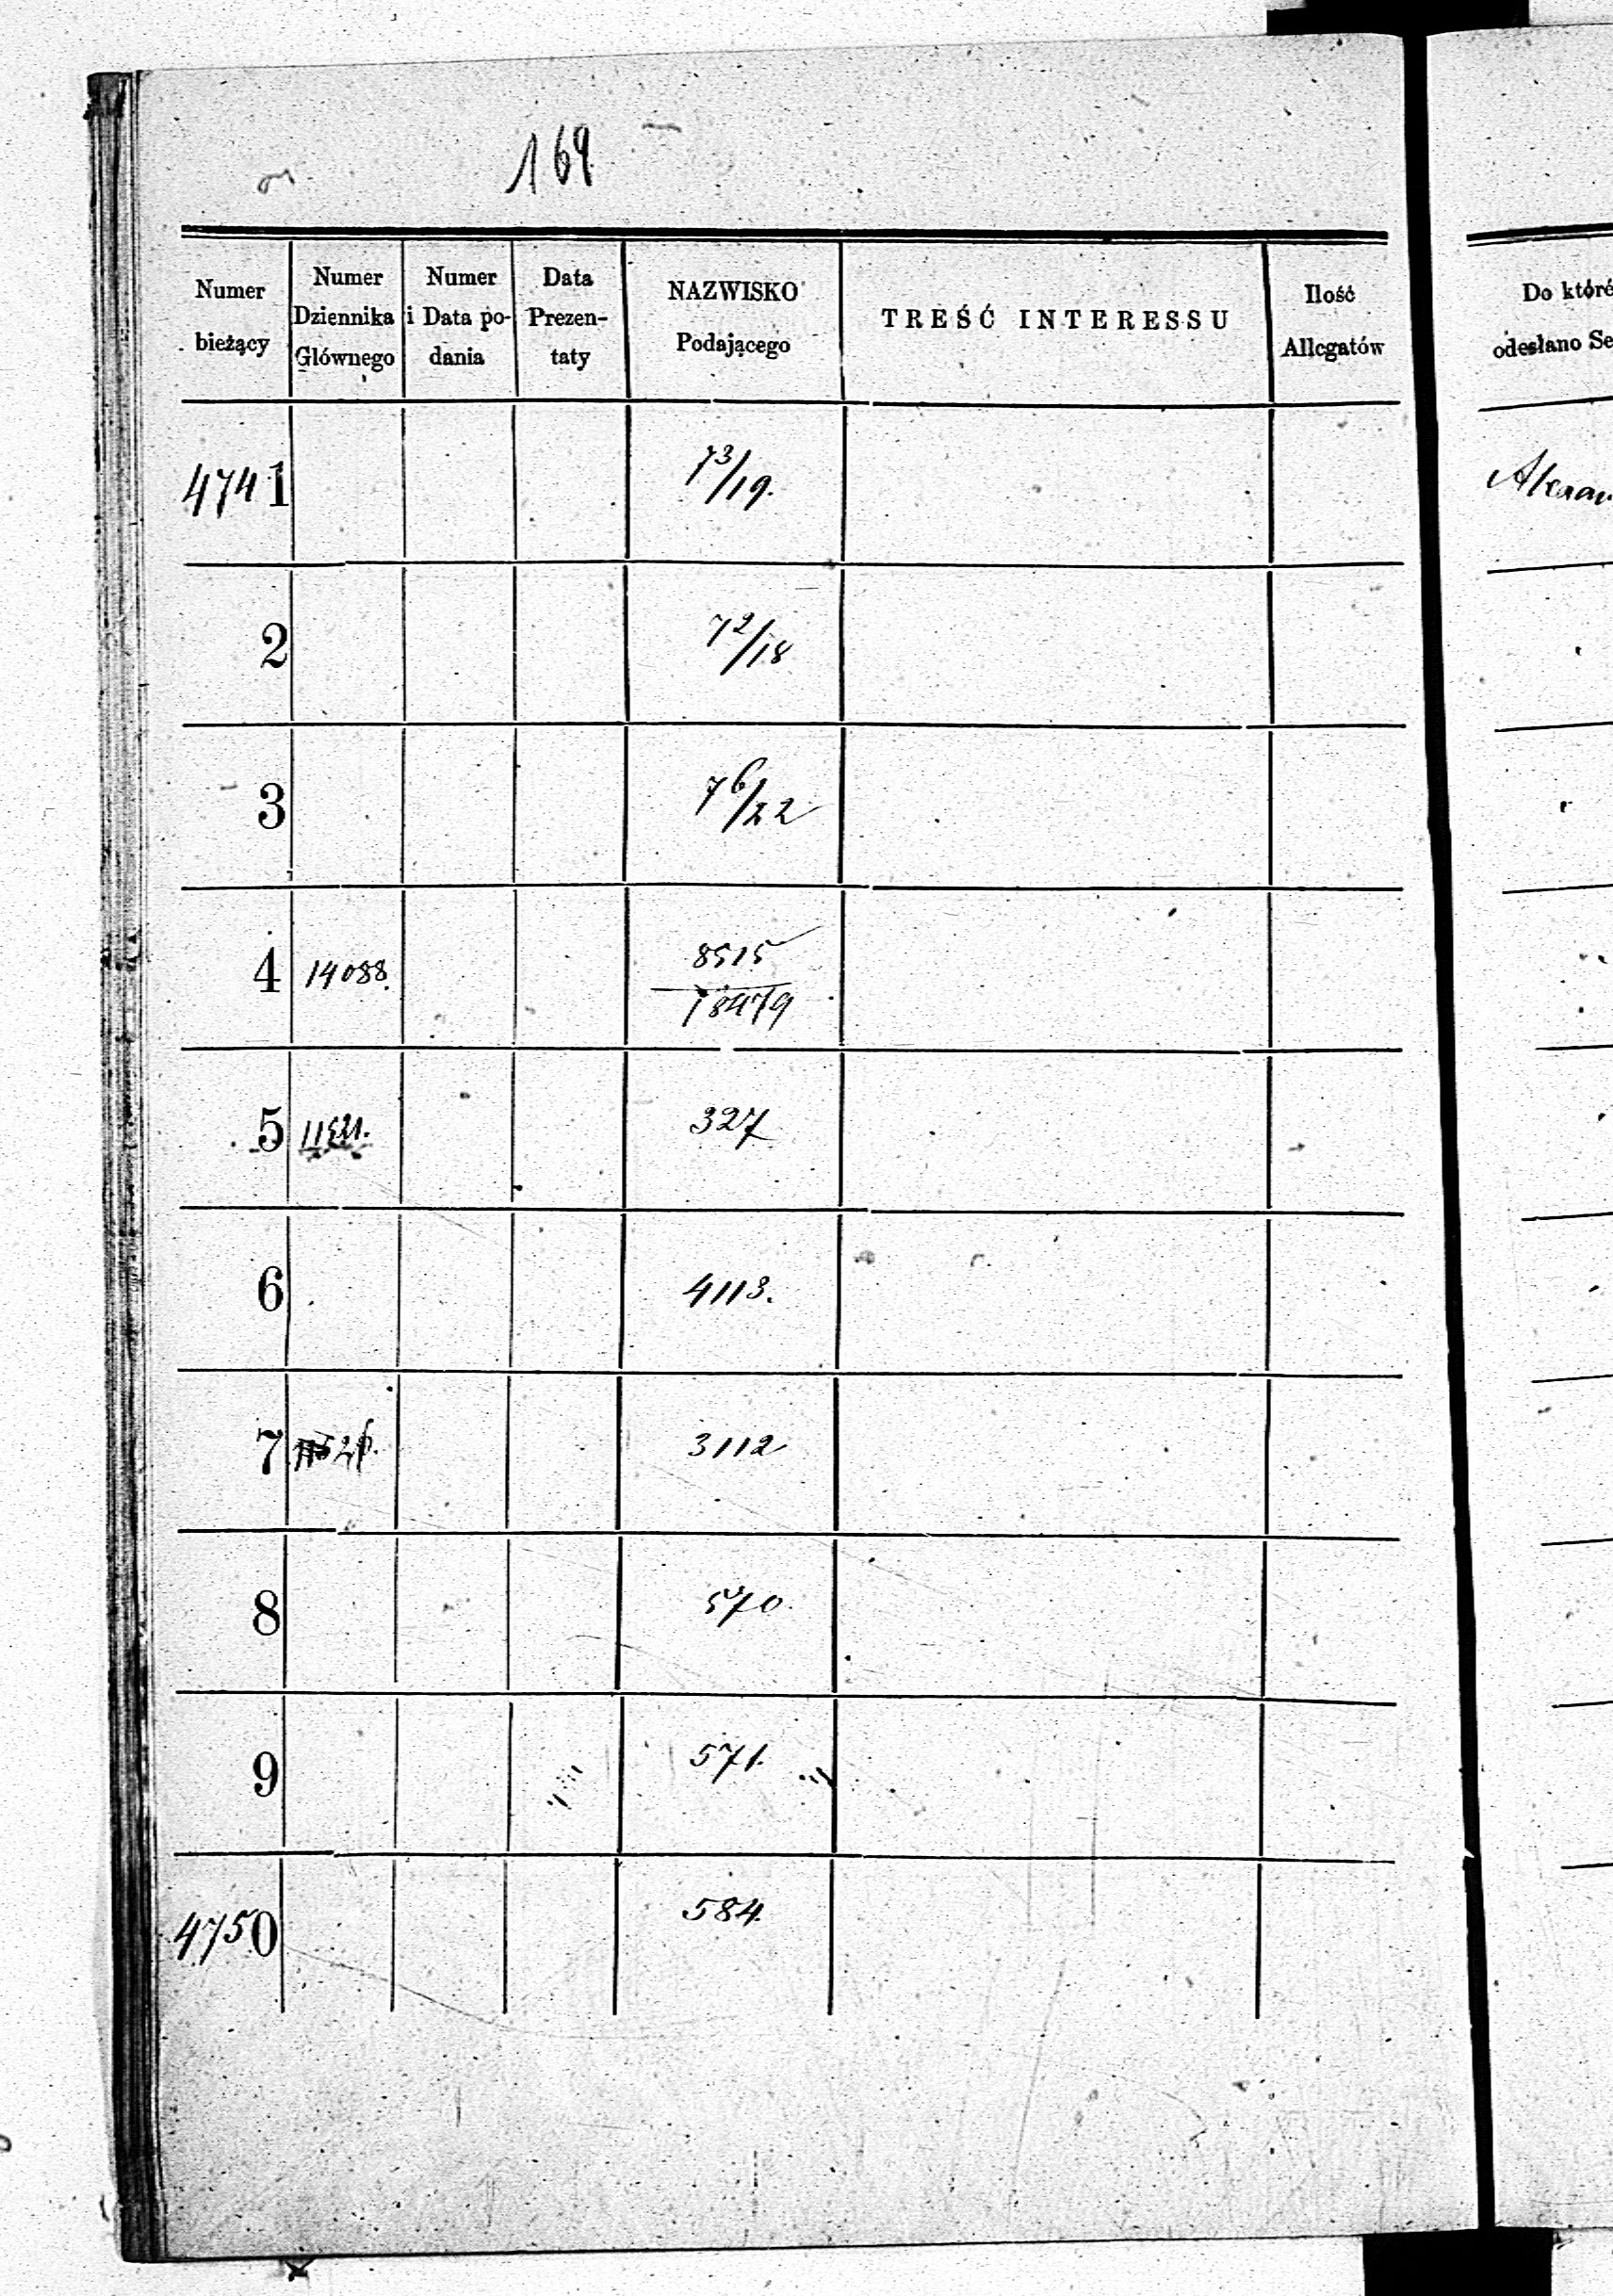 169
Numer bieżący
Numer Dziennika Głównego
Numer i Data podania
Data Prezentaty
NAZWISKO Podającego
TREŚĆ INTERESSU
Ilość Allegatów
Do które
odesłano Se
4741 73/19.
2 72/18
3 76/22
4 14088. 8515
18479
5 327
6 4113.
7 3112
8 570.
9 571.
4750 584.